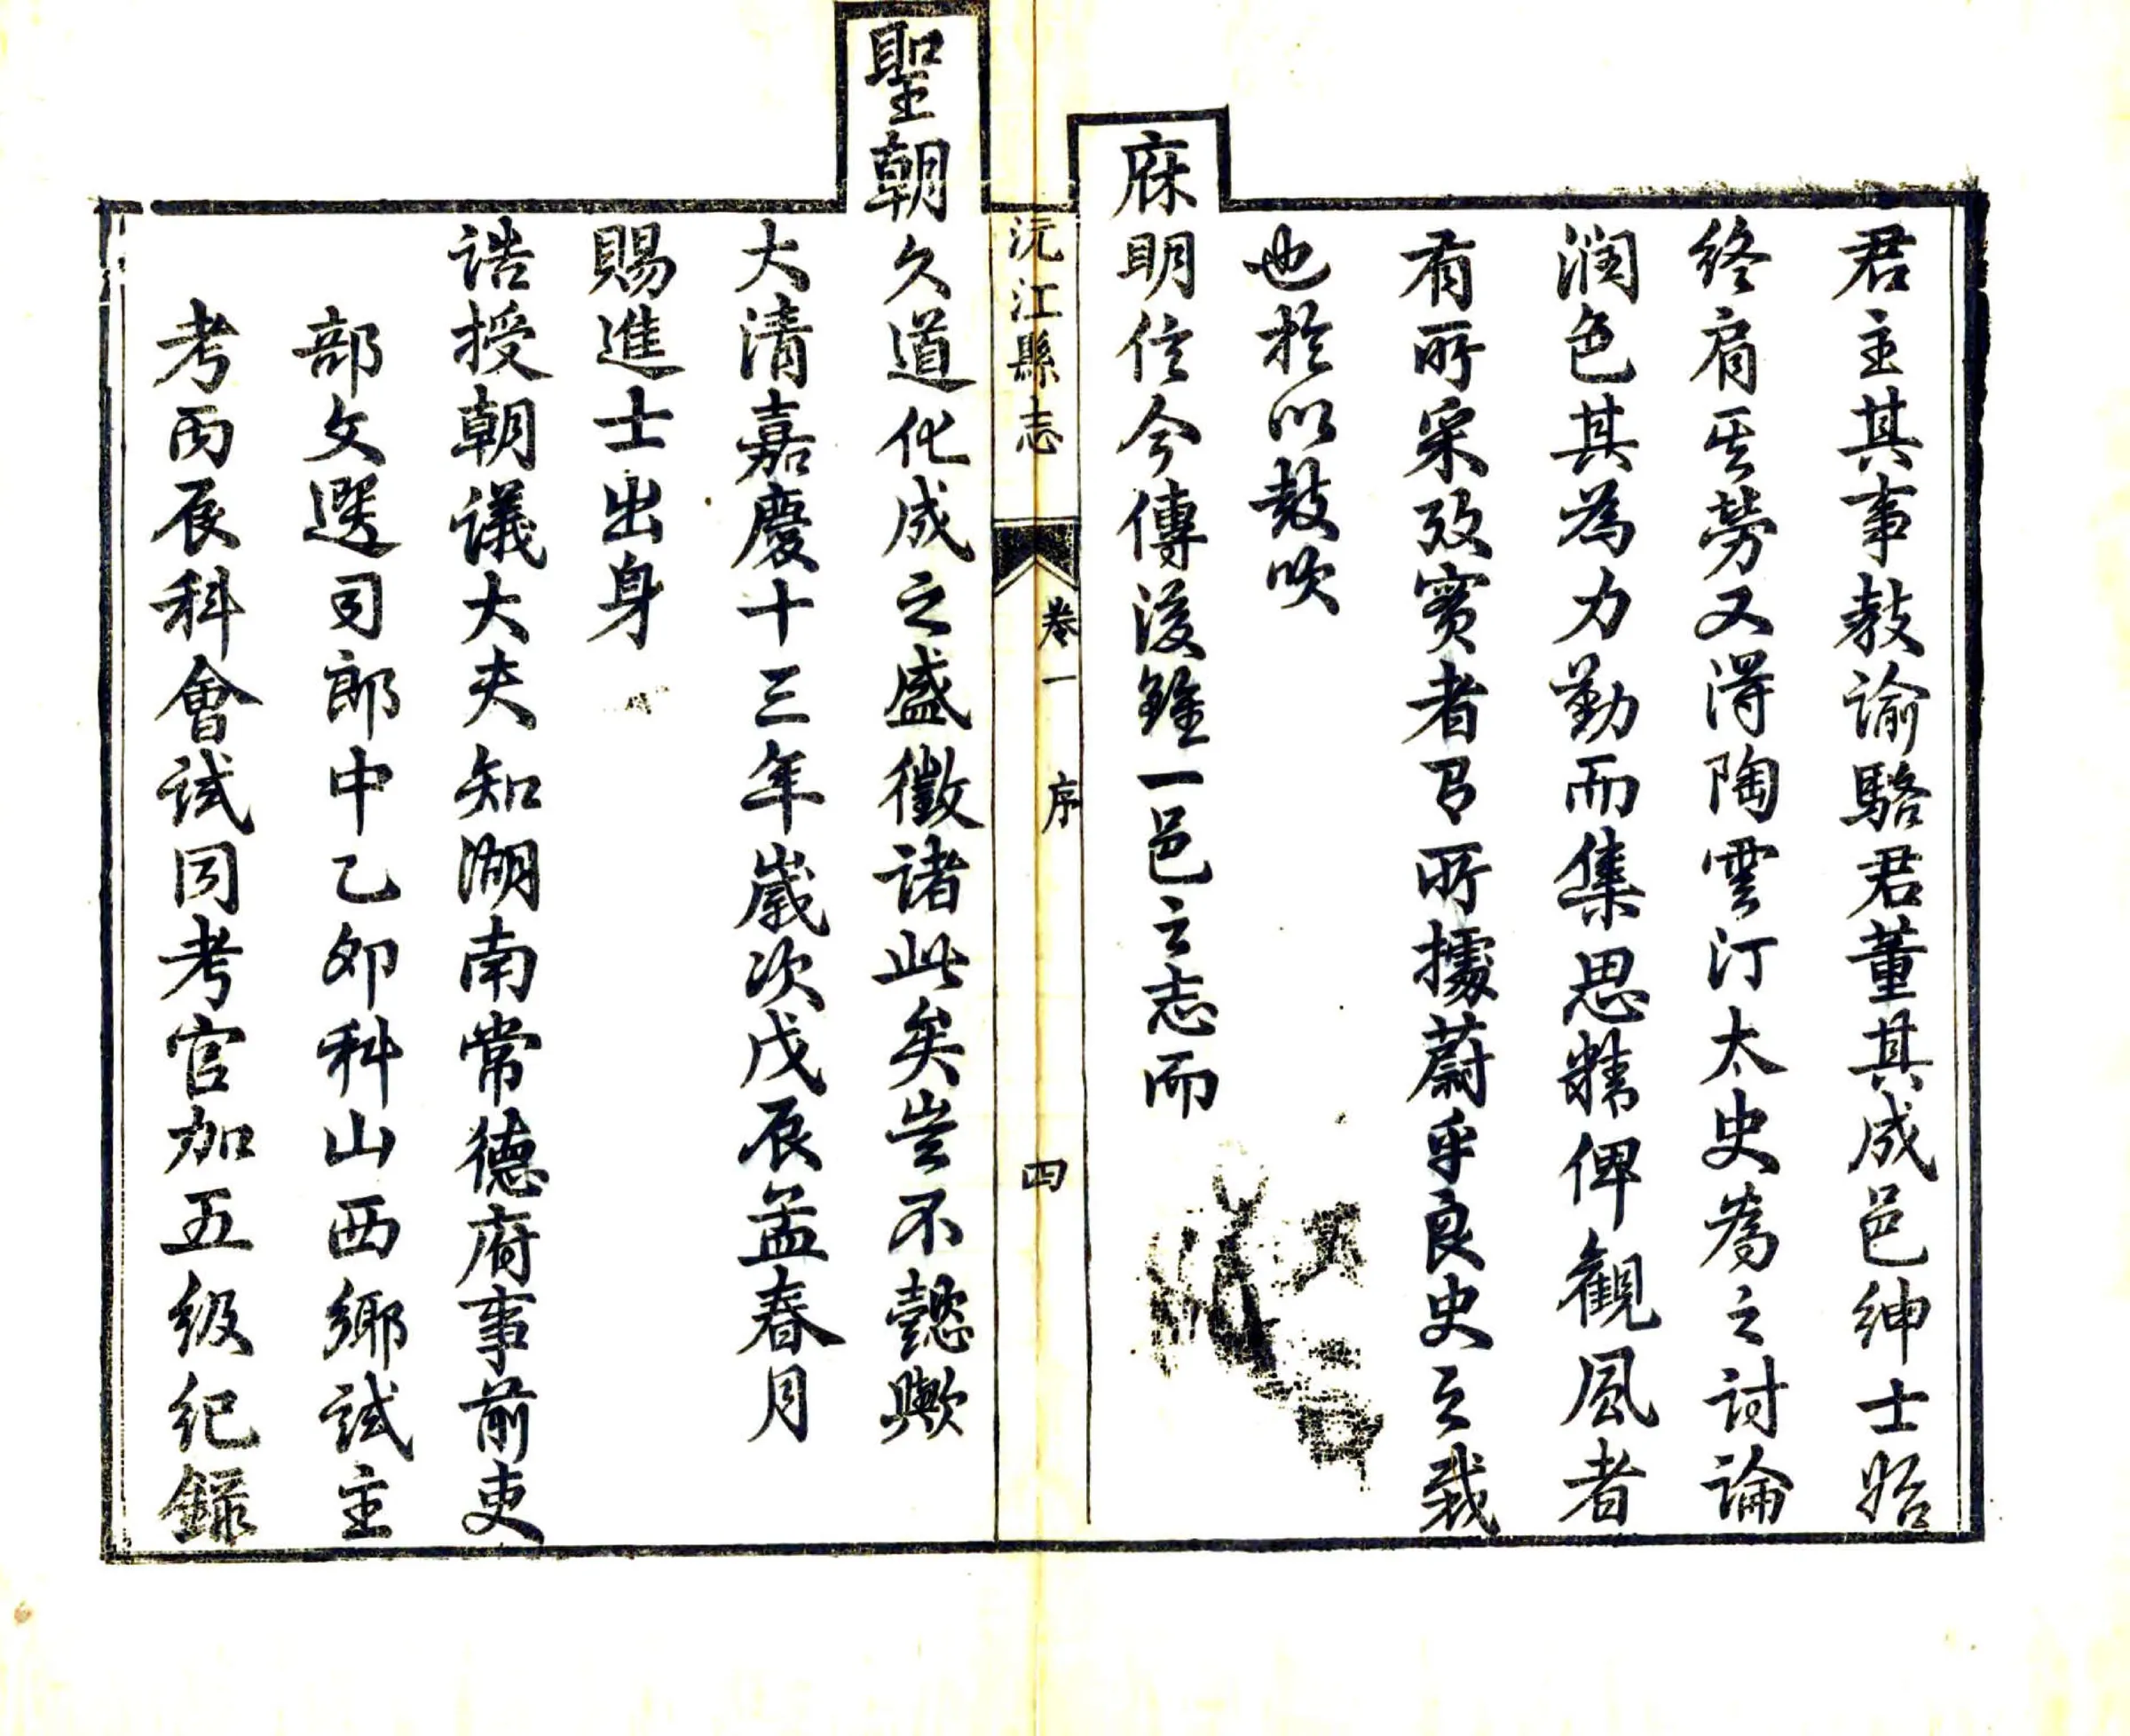 君主其事教諭駱君董其成邑紳士始
終肩其勞又得陶雲汀太史為之討論
潤色其為力勤而集思精俾觀風者
有所采攷實者有所據蔚乎良史之裁
也於以鼓吹
庥明信今傳後錐一邑之志而
沅江縣志 卷一 序 四
聖朝久道化成之盛徵諸此矣豈不懿歟
大清嘉慶十三年歲次戊辰孟春月
賜進士出身
誥授朝議大夫知湖南常德府事前吏
部文選司郎中乙卯科山西鄉試主
考丙辰科會試同考官加五級紀錄